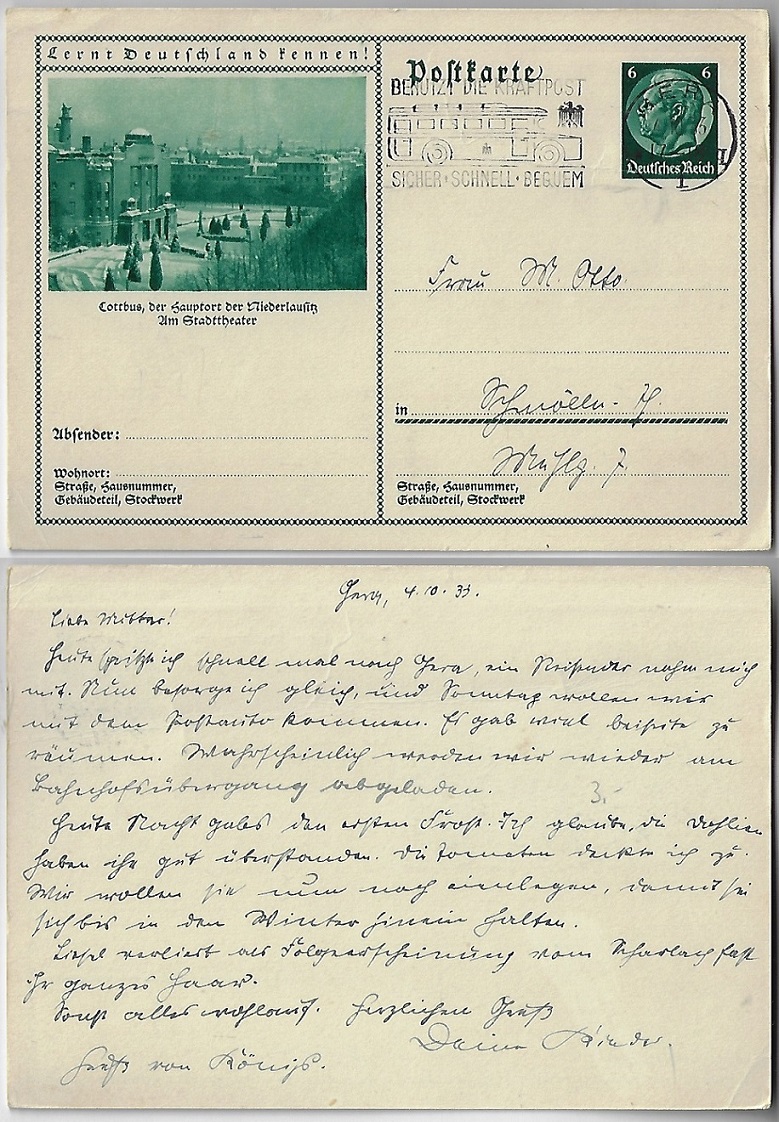 Lernt Deutschland kennen!
Postkarte
BENUTZT DIE KRAFTPOST
SICHER · SCHNELL · BEQUEM
6 6
Deutsches Reich
Cottbus, der Hauptort der Niederlausitz
Am Stadttheater
Frau M. Otto.
in Schmölln-Th.
Mühlg. 7
Absender:
Wohnort:
Straße, Hausnummer,
Gebäudeteil, Stockwerk
Straße, Hausnummer,
Gebäudeteil, Stockwerk
Gera, 4.10.33.
Liebe Mutter!
Heute spritzte ich schnell mal nach Gera, ein Reisender nahm mich
mit. Nun besorge ich gleich, und Sonntag wollen wir
mit dem Postauto kommen. Es gab viel beiseite zu
räumen. Wahrscheinlich werden wir wieder am
Bahnhofsübergang abgeladen.
3.-
Heute Nacht gabs den ersten Frost. Ich glaube, die Dahlien
haben ihn gut überstanden. Die Tomaten deckte ich zu.
Wir wollen sie nun noch einlegen, damit sie
sich bis in den Winter hinein halten.
Liesel verliert als Folgeerscheinung vom Scharlach fast
ihr ganzes Haar.
Sonst alles wohlauf. Herzlichen Gruß
Deine Kinder.
Gruß von Königs.